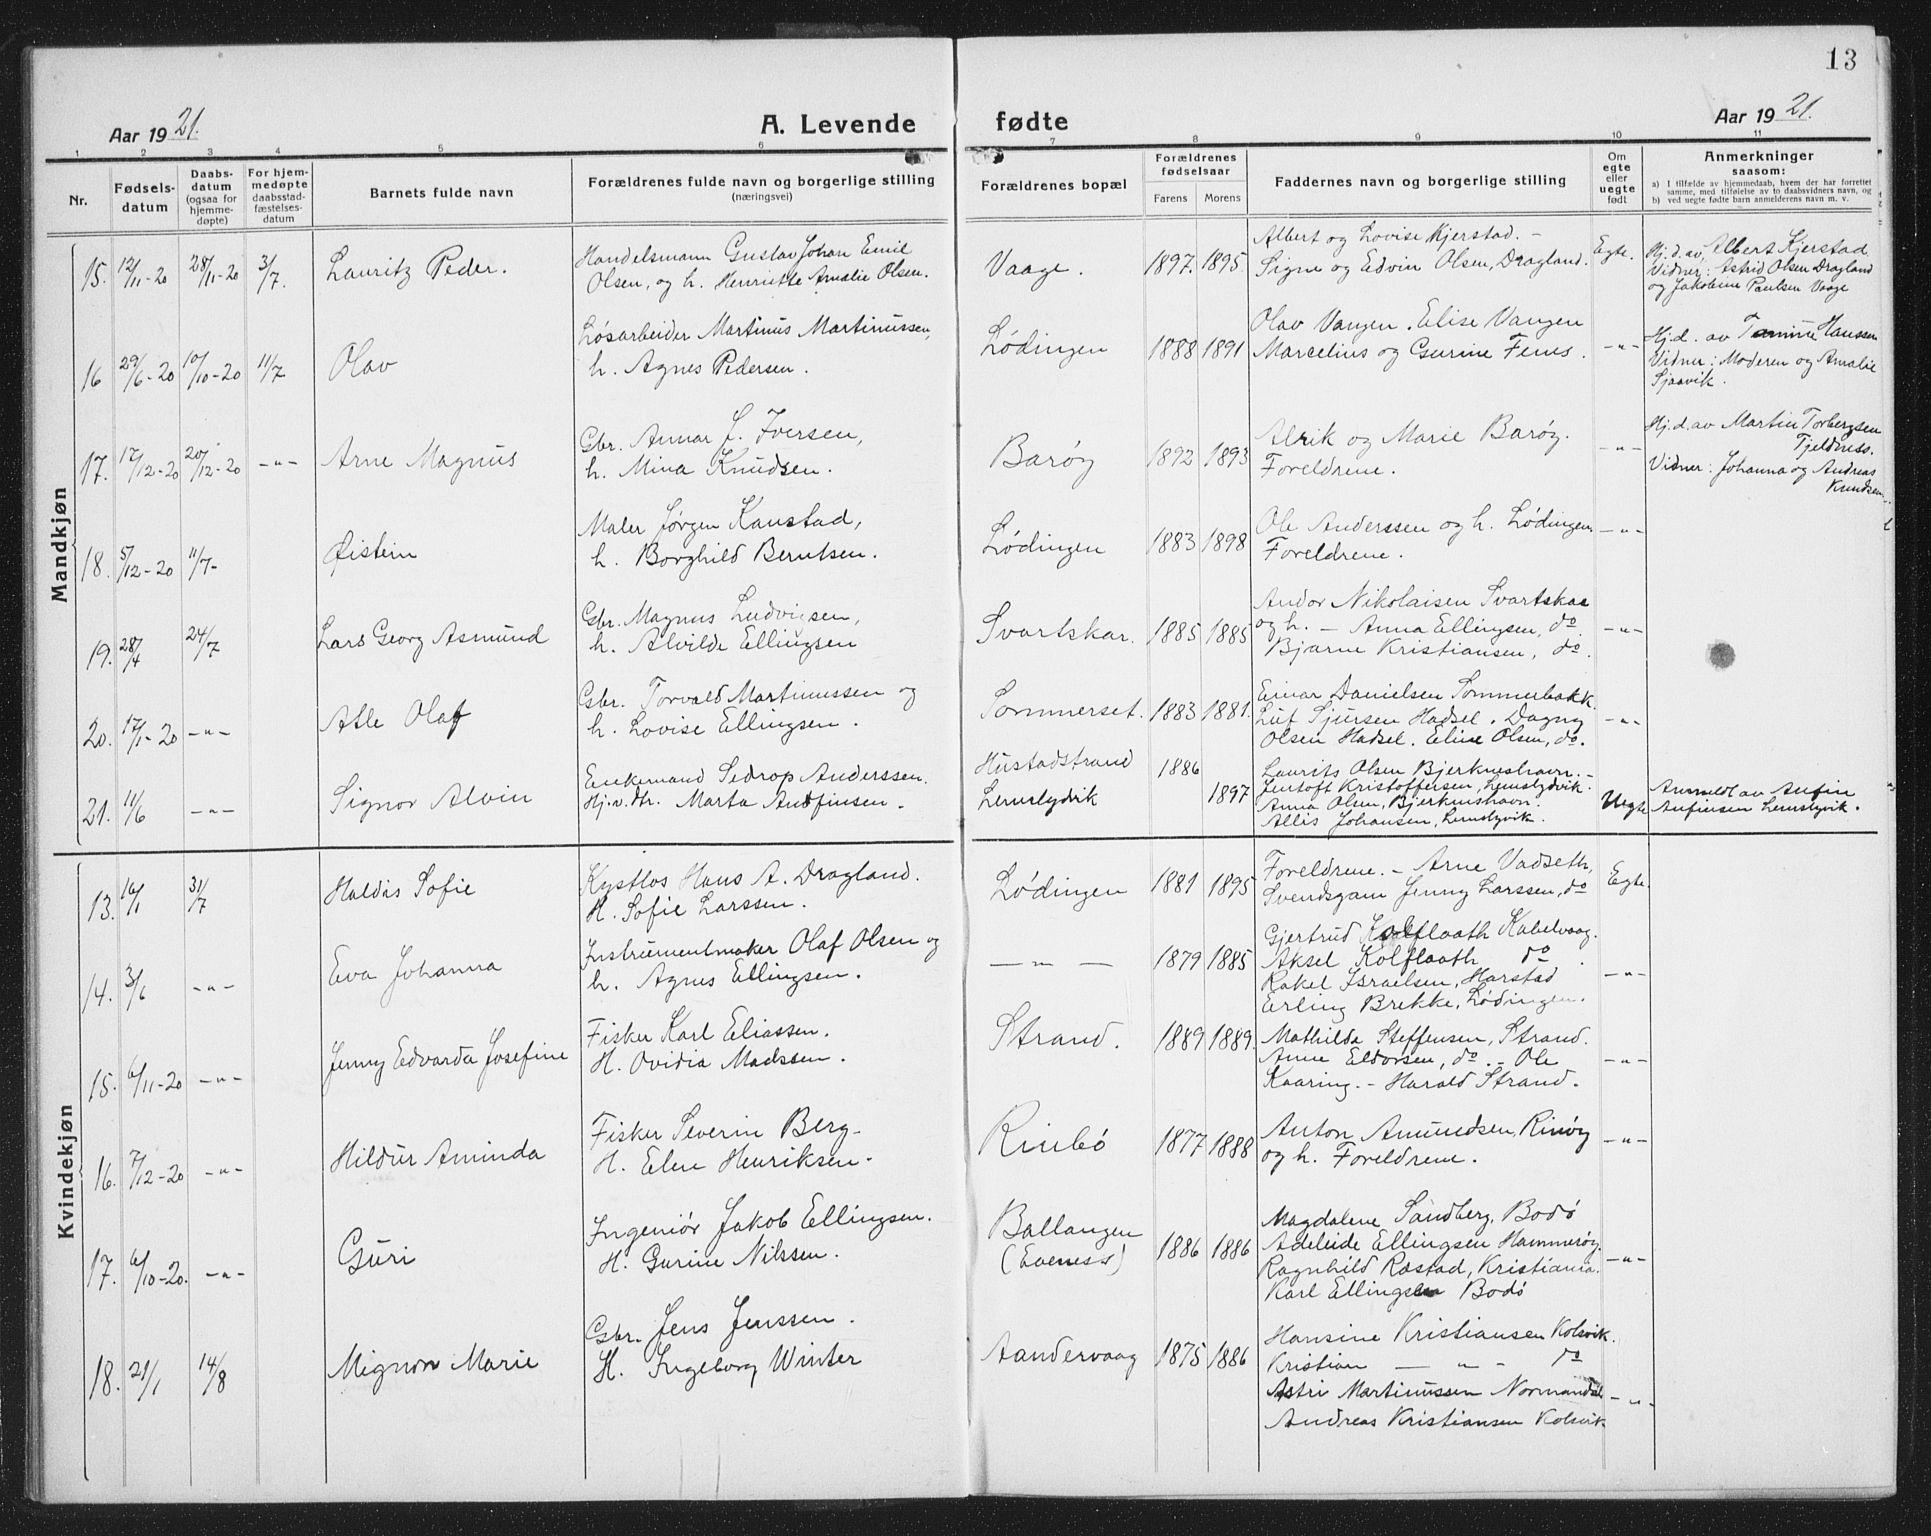 13
Aar 1921.
A. Levende
fødte
Aar 1921.
1 2 3 4 5 6 7 8 9 10 11
Nr.
Fødsels-
datum
Daabs-
datum
(ogsaa for
hjemme-
døpte)
For hjem-
medøpte
daabsstad-
fæstelses-
datum
Barnets fulde navn
Forældrenes fulde navn og borgerlige stilling
(næringsvei)
Forældrenes bopæl
Forældrenes
fødselsaar
Farens
Morens
Faddernes navn og borgerlige stilling
Om
egte
eller
uegte
født
Anmerkninger
saasom:
a) I tilfælde av hjemmedaab, hvem der har forrettet
samme, med tilføielse av to daabsvidners navn, og
b) ved uegte fødte barn anmelderens navn m. v.
Mandkjøn
15. 12/11-20 28/11-20 3/7. Lauritz Peder.
Handelsmann Gustav Johan Emil
Olsen, og h. Henriette Amalie Olsen.
Vaage. 1897. 1895.
Albert og Lovise Kjerstad. -
Signe og Edvin Olsen, Dragland.
Egte.
Hj.d. av, Albert Kjerstad
Vidner: Astrid Olsen Dragland
og Jakobine Paulsen Vaage
16 29/6-20 10/10-20 11/7 Olav
Løsarbeider Martinus Martinussen,
h. Agnes Pedersen.
Lødingen 1888 1891
Olav Vangen. Elise Vangen
Marcelius og Gurine Fenes.
-"-
Hj.d. av Hanssen
Vidner: Moderen og Amalie
Sjaavik.
17. 17/12-20 20/12-20 -"- Arne Magnus
Gbr. Annar J. Iversen,
h. Mina Knudsen.
Barøy 1892 1893
Alrik og Marie Barøy.
Foreldrene.
-"-
Hj.d. av Martin Torbergsen
Tjeldness.
Vidner: Johanna og Andreas
Knudsen
18. 5/12-20 11/7- Øistein
Maler Jørgen Kanstad,
h. Borghild Berntsen.
Lødingen 1883 1898
Ole Anderssen og h. Lødingen
Foreldrene.
-"-
19. 28/4 24/7 Lars Georg Asmund
Gbr. Magnus Ludvigsen,
h. Alvilde Ellingsen
Svartskar. 1885 1885
Andor Nikolaisen Svartskar
og h. - Anna Ellingsen, do
Bjarne Kristiansen, do.
-"-
20. 17/1-20 -"- Atle Olaf
Gbr. Torvald Martinussen og
h. Lovise Ellingsen.
Sommerset. 1883 1881.
Einar Danielsen Sommerbakk.
Luf Sjursen Hadsel. Dagny
Olsen Hadsel. Eline Olsen, do.
-"-
21. 11/6 -"- Signor Alvin
Enkemand Sedrop Anderssen.
Hj.v.dtr. Marta Andfinsen.
Hustadstrand 1886
Lemslydvik 1897
Laurits Olsen Bjerkneshavn. -
Jentoft Kristoffersen, Lemslydvik.
Anna Olsen, Bjerkneshavn.
Allis Johansen, Lemslyvik.
Uegte
Anmeldt av Anfin
Anfinsen Lemslyvik.
Kvindekjøn
13. 16/1 31/7 Haldis Sofie
Kystlos Hans A. Dragland.
H. Sofie Larssen.
Lødingen 1881 1895
Foreldrene. - Arne Vadseth,
Svendsgam Jenny Larssen, do
Egte.
14. 3/6 -"- Eva Johanna
Instrumentmaker Olaf Olsen og
h. Agnes Ellingsen.
- " - 1879 1885
Gjertrud Kolflaath Kabelvaag.
Aksel Kolflaath do.
Rakel Israelsen, Harstad
Erling Brekke, Lødingen.
-"-
15. 6/11-20 -"- Jenny Edvarda Josefine
Fisker Karl Eliassen.
H. Ovidia Madssen.
Strand. 1889 1889.
Mathilda Steffensen, Strand.
Anne Eldorsen, do. - Ole
Kaaring. - Harald Strand.
-"-
16. 7/12-20 -"- Hildur Aminda
Fisker Severin Berg-
H. Elen Henriksen-
Rinbø 1877 1888
Anton Amundsen, Rinøy
og h. Foreldrene.
-"-
17. 6/10-20. -"- Guri
Ingeniør Jakob Ellingsen.
H. Gurine Nilssen.
Ballangen
(Evenes) 1886 1886
Magdalene Sandberg, Bodø
Adeleide Ellingsen Hammerøy.
Ragnhild Røstad, Kristiania.
Karl Ellingsen Bodø
-"-
18. 21/1 14/8 Mignon Marie
Gbr. Jens Jenssen.
H. Ingeborg Winter
Aandervaag 1875 1886
Hansine Kristiansen Kolsvik.
Kristian - " - do
Astri Martinussen Normands
Andreas Kristiansen Kolsvik
-"-